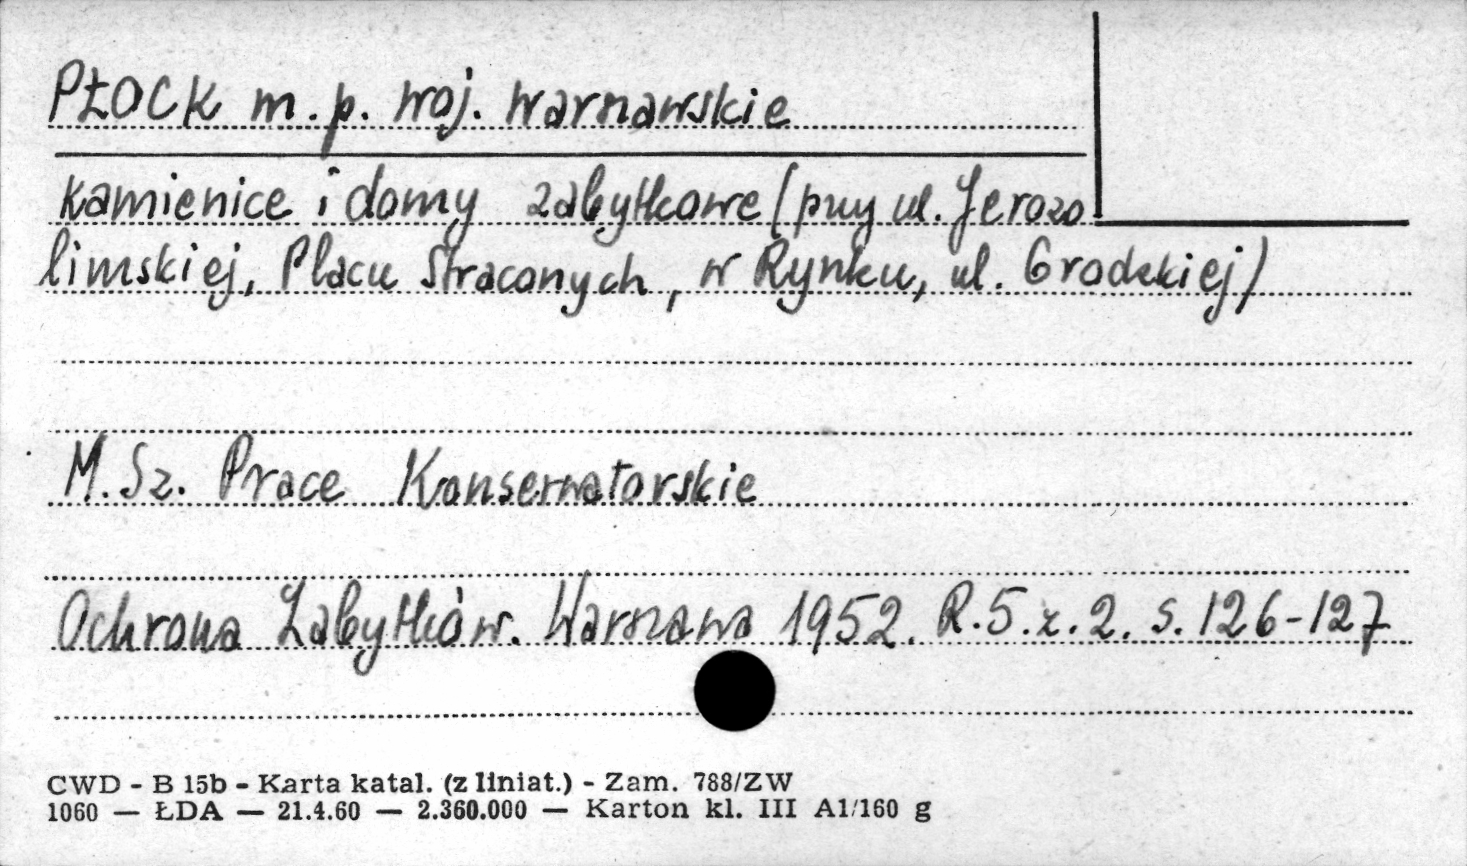 PŁOCK m. p. woj. warszawskie
kamienice i domy zabytkowe (przy ul. Jerozo
limskiej, Placu Straconych, w Rynku, ul. Grodzkiej)
M. Sz. Prace Konserwatorskie
Ochrona Zabytków. Warszawa 1952. R. 5. z. 2. s. 126-127
CWD - B 15b - Karta katal. (z liniat.) - Zam. 788/ZW
1060 — ŁDA — 21.4.60 — 2.360.000 — Karton kl. III A1/160 g